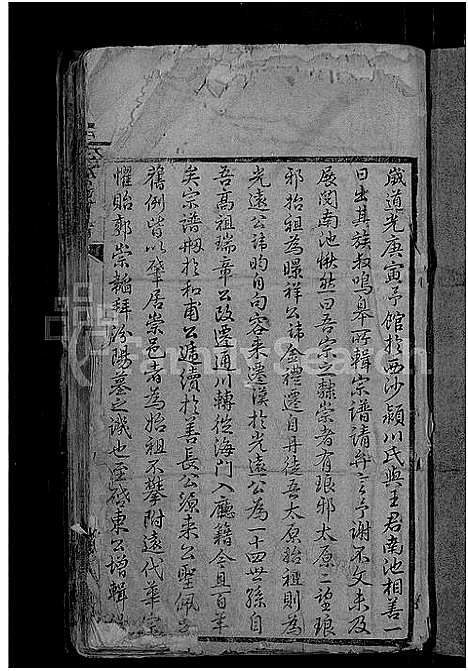 歲道光庚寅予館於西沙潁川氏與王君南池相善一
日出其族叔鳴皋所輯宗譜請弁言予謝不文未及
展閱南池愀然曰吾宗之隸崇者有琅邪太原二望琅
邪始祖為暻祥公諱金禮遷自丹徒吾太原始祖則為
光遠公諱昀自句容來遷溪於光遠公為一十四世孫自
吾高祖瑞章公改遷通川轉從海門入廳籍今且百年
矣宗譜刱於和甫公嬉續於善長公源來公聖佩公
舊例皆以肇居崇邑者為始祖不攀附遠代華宗
懼貽郭崇韜拜汾陽墓之誚也至啟東公增輯
Sunny Search